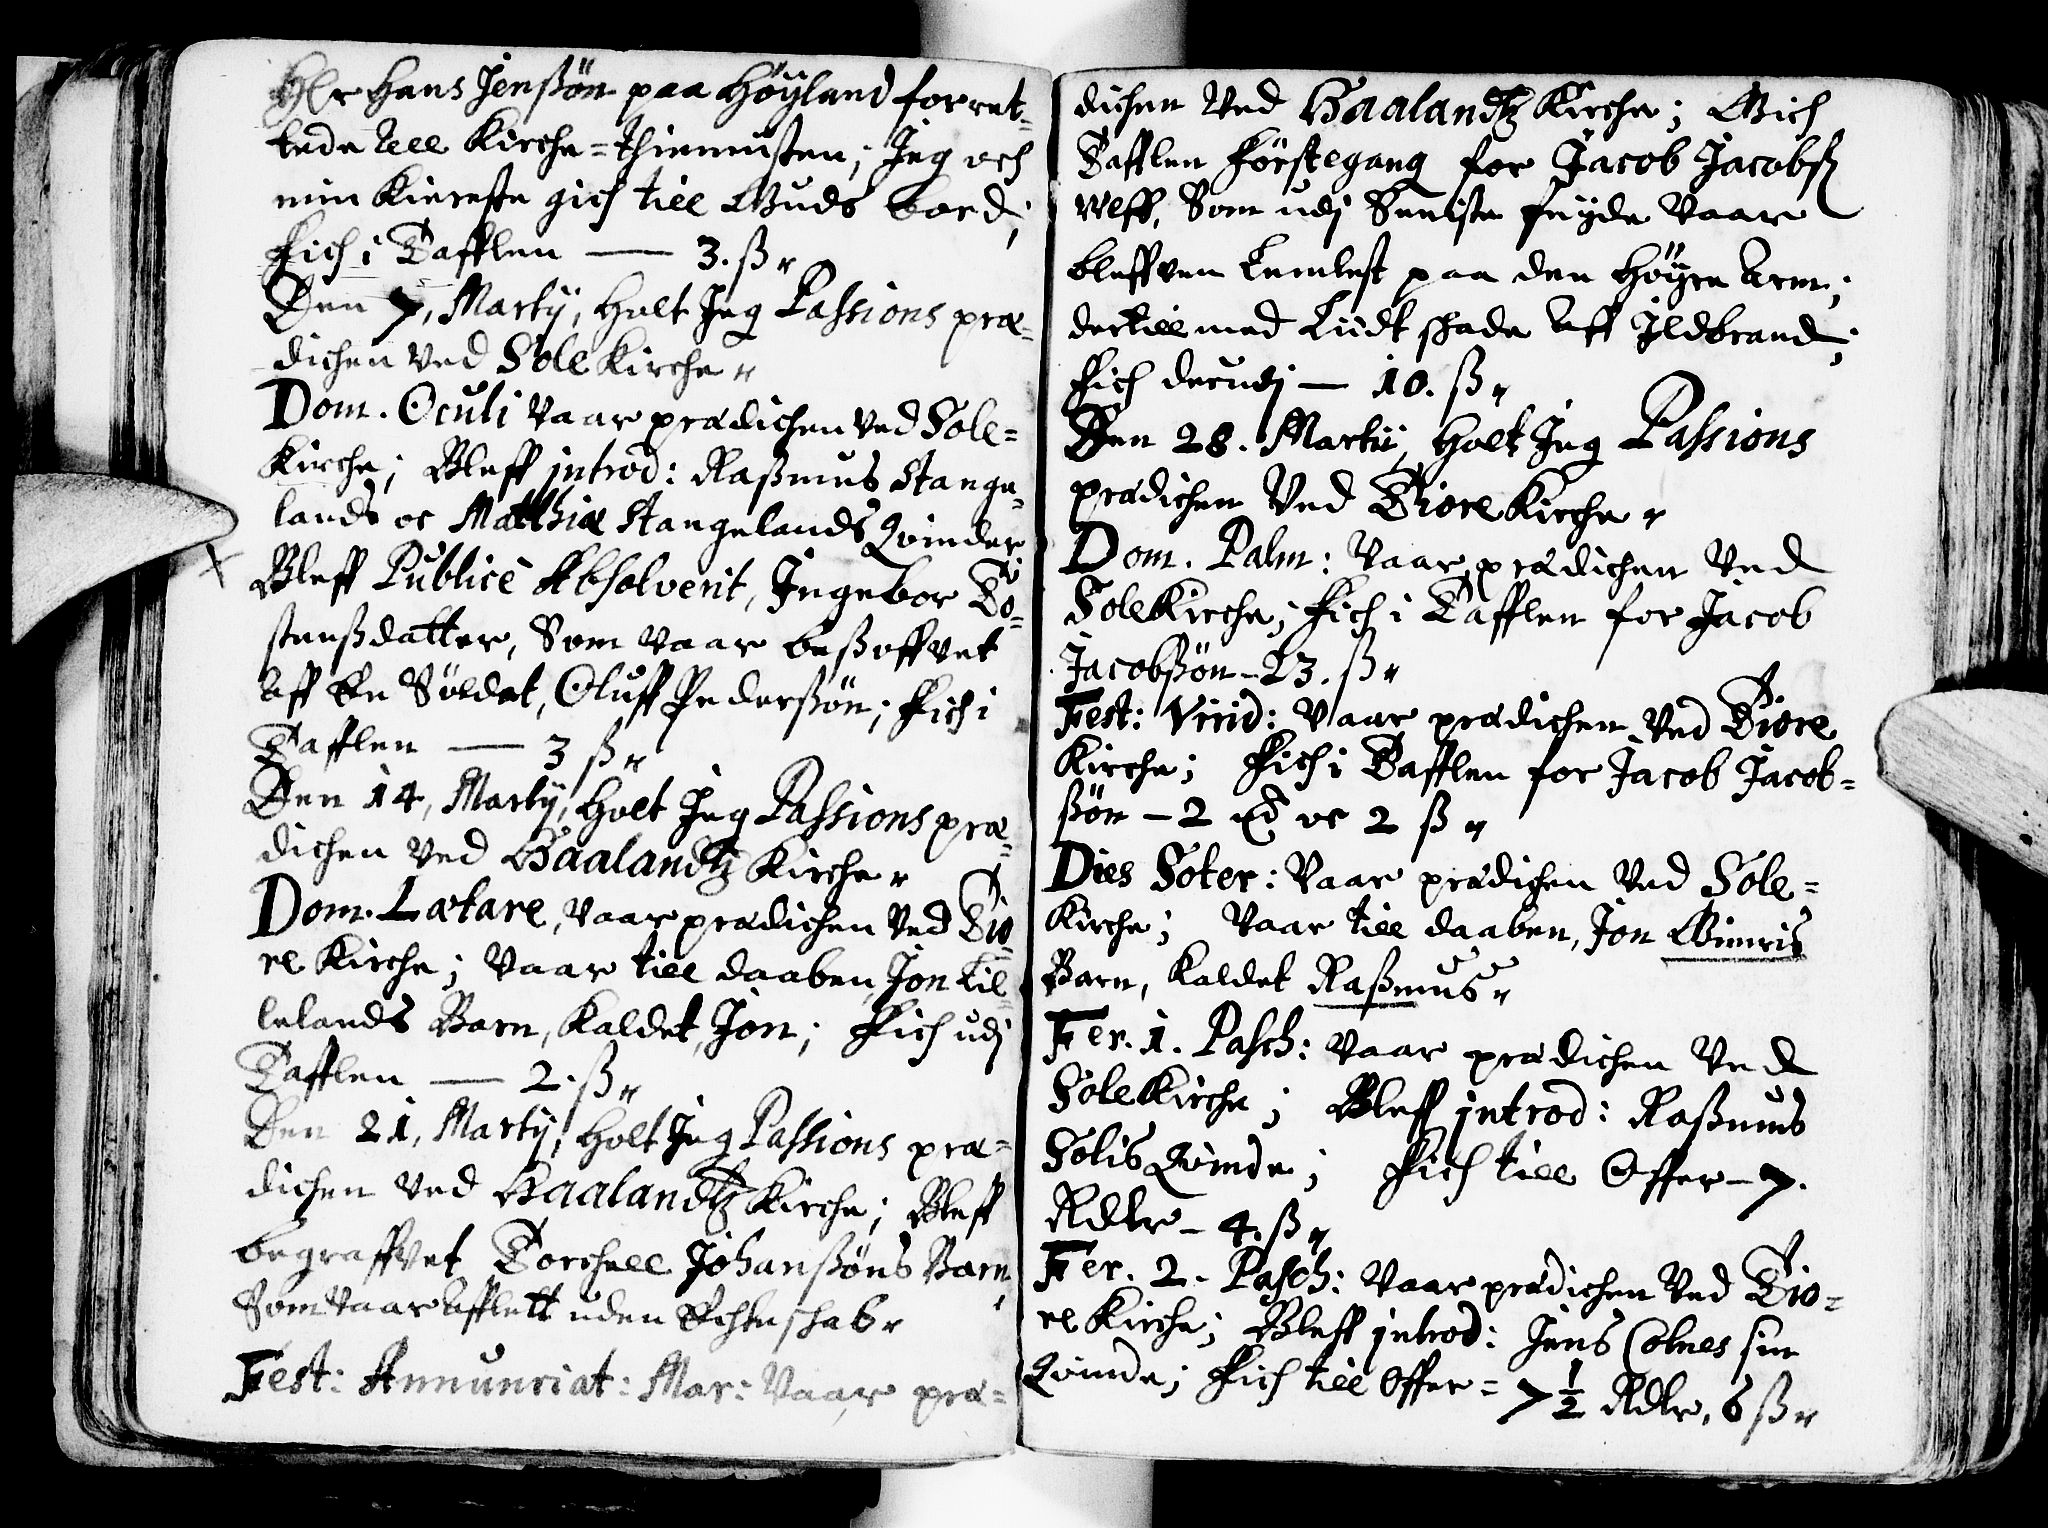 Hr Hans Jenßøn paa Høÿland forret-
tede all Kirche=thiennisten; Jeg och
min Kiereste gich till Guds bord;
Fich i Tafflen — 3. ß
Den 7, Martÿ, holt Jeg Passions præ-
dichen ved Sole Kirche
Dom. Oculi vaar prædichen ved Sole=
Kirche; Bleff introd: Raßmus Stange-
lands oc Matthiæ Stangelands Qvinder
Bleff Publicè Absolverit, Ingebor To-
stenßdatter, Som vaar besoffvet
aff En Soldat, Oluff Pederßøn; Fich i
Tafflen — 3 ß
Den 14, Martÿ, holt Jeg Passions præ-
dichen ved Haalandtz Kirche
Dom. Lætare, vaar prædichen ved Tio-
re Kirche; vaar till daaben, Jon Lil-
lelands Barn, kaldet, Jon; Fich udj
Tafflen — 2. ß
Den 21, Martÿ, holt Jeg Passions præ=
dichen ved Haalandtz Kirche; Bleff
begraffvet Torchell Johanßøns Barn,
Som vaar afflett uden Echteschab
Fest: Annunciat: Mar: vaar præ=
dichen ved Haalandtz Kirche; Gich
Tafflen førstegang for Jacob Jacobß
Som udj Seniste fejde vaar
bleffven lemlest paa den høyre Arm;
dertill med Liidt schade aff Ildbrand;
Fich derudj — 10. ß
Den 28. Martii, holt Jeg Passions
prædichen ved Tiore Kirche
Dom. Palm: vaar prædichen ved
Sole Kirche; Fich i Tafflen for Jacob
Jacobßøn – 23. ß
Fest: Virid: vaar prædichen ved Tiore
Kirche; Fich i Tafflen for Jacob Jacob=
ßøn – 2 oc 2 ß
Dies Soter: vaar prædichen ved Sole=
Kirche; vaar till daaben, Jon Gimris
Barn, kaldet Raßmus
Fer. 1. Pasch: vaar prædichen ved
Sole Kirche; Bleff introd: Raßmus
Solis Qvinde; Fich till Offer – 7.
Rdlr – 4. ß
Fer. 2. Pasch: vaar prædichen ved Tio=
re Kirche; Bleff introd: Jens Colnes sin
Qvinde; Fich till Offer = 7 1/2 Rdlr, 6 ß